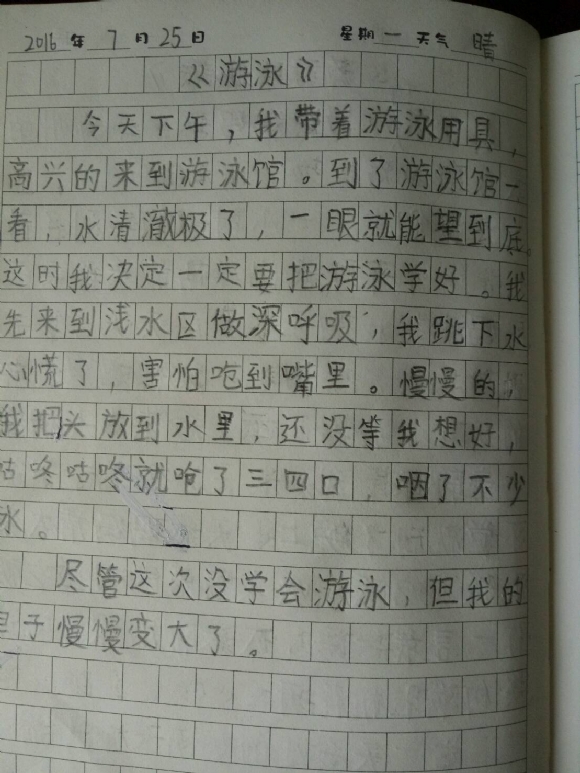 2016 年 7 月 25 日 星期一 天气 晴
《游泳》
今天下午，我带着游泳用具，
高兴的来到游泳馆。到了游泳馆一
看，水清澈极了，一眼就能望到底。
这时我决定一定要把游泳学好。我
先来到浅水区做深呼吸，我跳下水
心慌了，害怕呛到嘴里。慢慢的，
我把头放到水里，还没等我想好，
咕咚咕咚就呛了三四口，咽了不少
水。
尽管这次没学会游泳，但我的
子慢慢变大了。